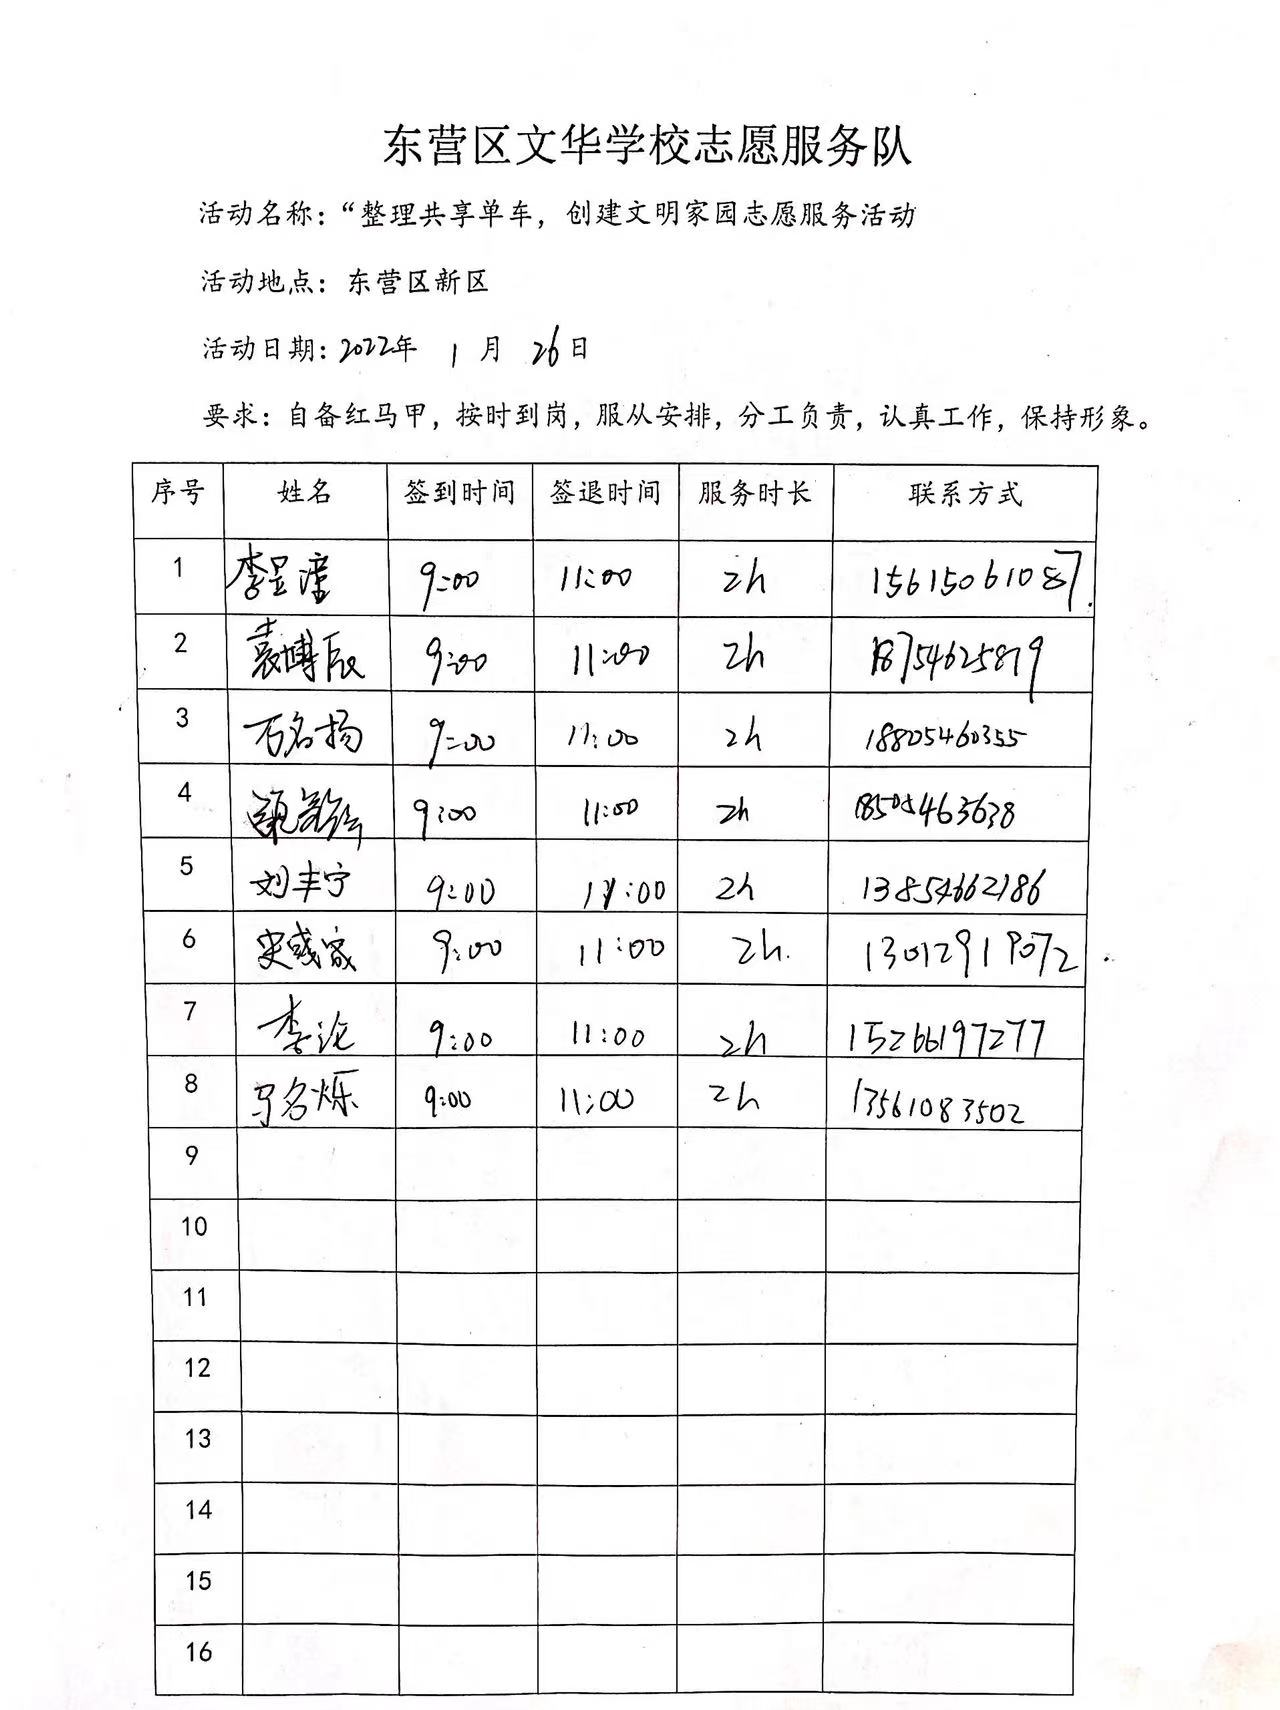 东营区文华学校志愿服务队
活动名称：“整理共享单车，创建文明家园志愿服务活动
活动地点：东营区新区
活动日期：2022年 1 月 26日
要求：自备红马甲，按时到岗，服从安排，分工负责，认真工作，保持形象。
序号 姓名 签到时间 签退时间 服务时长 联系方式
1 李昱潼 9:00 11:00 2h 15615061087
2 袁博辰 9:00 11:00 2h 18754625819
3 万名扬 9:00 11:00 2h 18805460355
4 9:00 11:00 2h 18505463638
5 刘丰宁 9:00 11:00 2h 13854662186
6 9:00 11:00 2h. 13012919072
7 李沦 9:00 11:00 2h 15266197277
8 马名烁 9:00 11:00 2h 13561083502
9
10
11
12
13
14
15
16